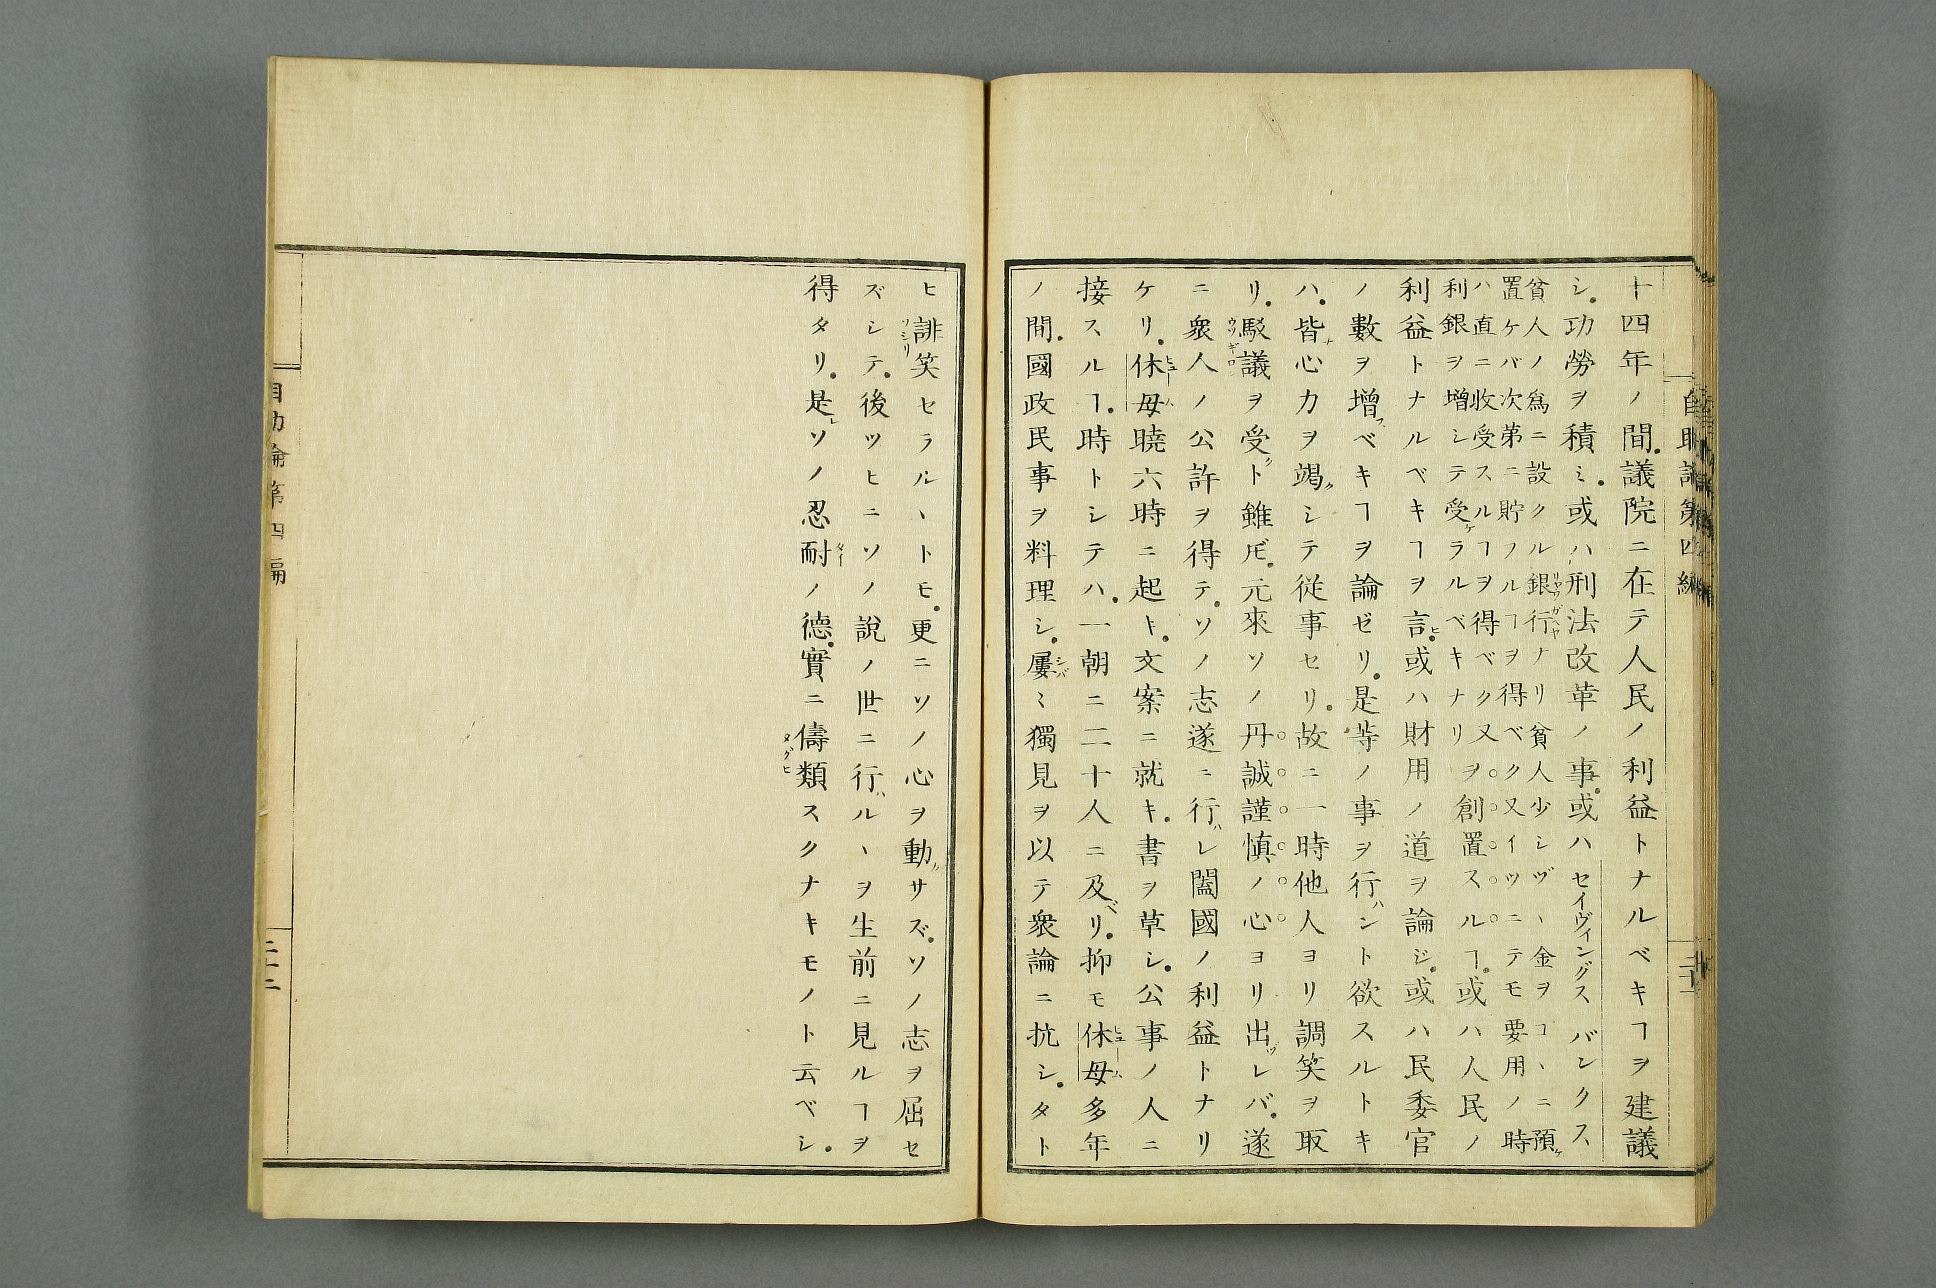 十四年ノ間。議院ニ在テ人民ノ利益トナルベキヿヲ建議
シ。功勞ヲ積ミ。或ハ刑法改革ノ事。或ハセイヴィングスバンクス
貧人ノ爲ニ設クル銀行ナリ貧人少シヅヽ金ヲコヽニ預ケ
置ケバ次第ニ貯フルヿヲ得ベク又イツニテモ要用ノ時
ハ直ニ收受スルヿヲ得ベク又
利銀ヲ增シテ受ケラルベキナリ
ヲ創置スルヿ。或ハ人民ノ
利益トナルベキヿヲ言ヒ。或ハ財用ノ道ヲ論ジ。或ハ民委官
ノ數ヲ增スベキヿヲ論ゼリ。是等ノ事ヲ行ハント欲スルトキ
ハ。皆ナ心力ヲ竭クシテ從事セリ。故ニ一時他人ヨリ調笑ヲ取
リ。駁議ヲ受クト雖ドモ。元來ソノ丹誠謹愼ノ心ヨリ出ヅレバ。遂
ニ衆人ノ公許ヲ得テ。ソノ志遂ニ行ハレ闔國ノ利益トナリ
ケリ。休母曉六時ニ起キ。文案ニ就キ。書ヲ草シ。公事ノ人ニ
接スルヿ。時トシテハ。一朝ニ二十人ニ及ベリ。抑モ休母多年
ノ間。國政民事ヲ料理シ。屢〻獨見ヲ以テ衆論ニ抗シ。タト
ヒ誹笑セラルヽトモ。更ニソノ心ヲ動カサズ。ソノ志ヲ屈セ
ズシテ。後ツヒニソノ說ノ世ニ行ハルヽヲ生前ニ見ルヿヲ
得タリ。是レソノ忍耐ノ德。實ニ儔類スクナキモノト云ベシ。
自助論第四編
二十二